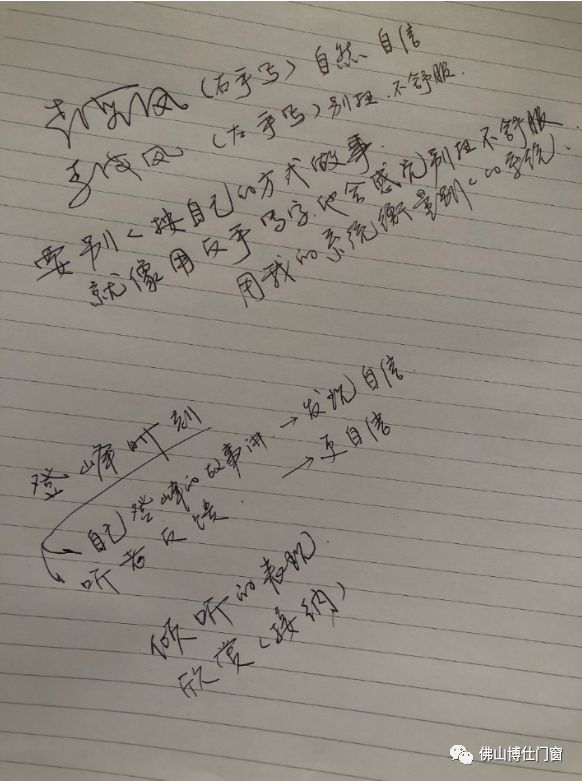 (右手写) 自然 自信
(左手写) 别扭.不舒服.
要别人按自己的方式做事.
就像用反手写字.他会感觉别扭不舒服
用我的系统衡量别人的系统.
登峰时刻
自己登峰的故事讲 → 发现自信.
听者反馈. → 更自信
倾听的表现.
欣赏(接纳)
佛山博仕门窗